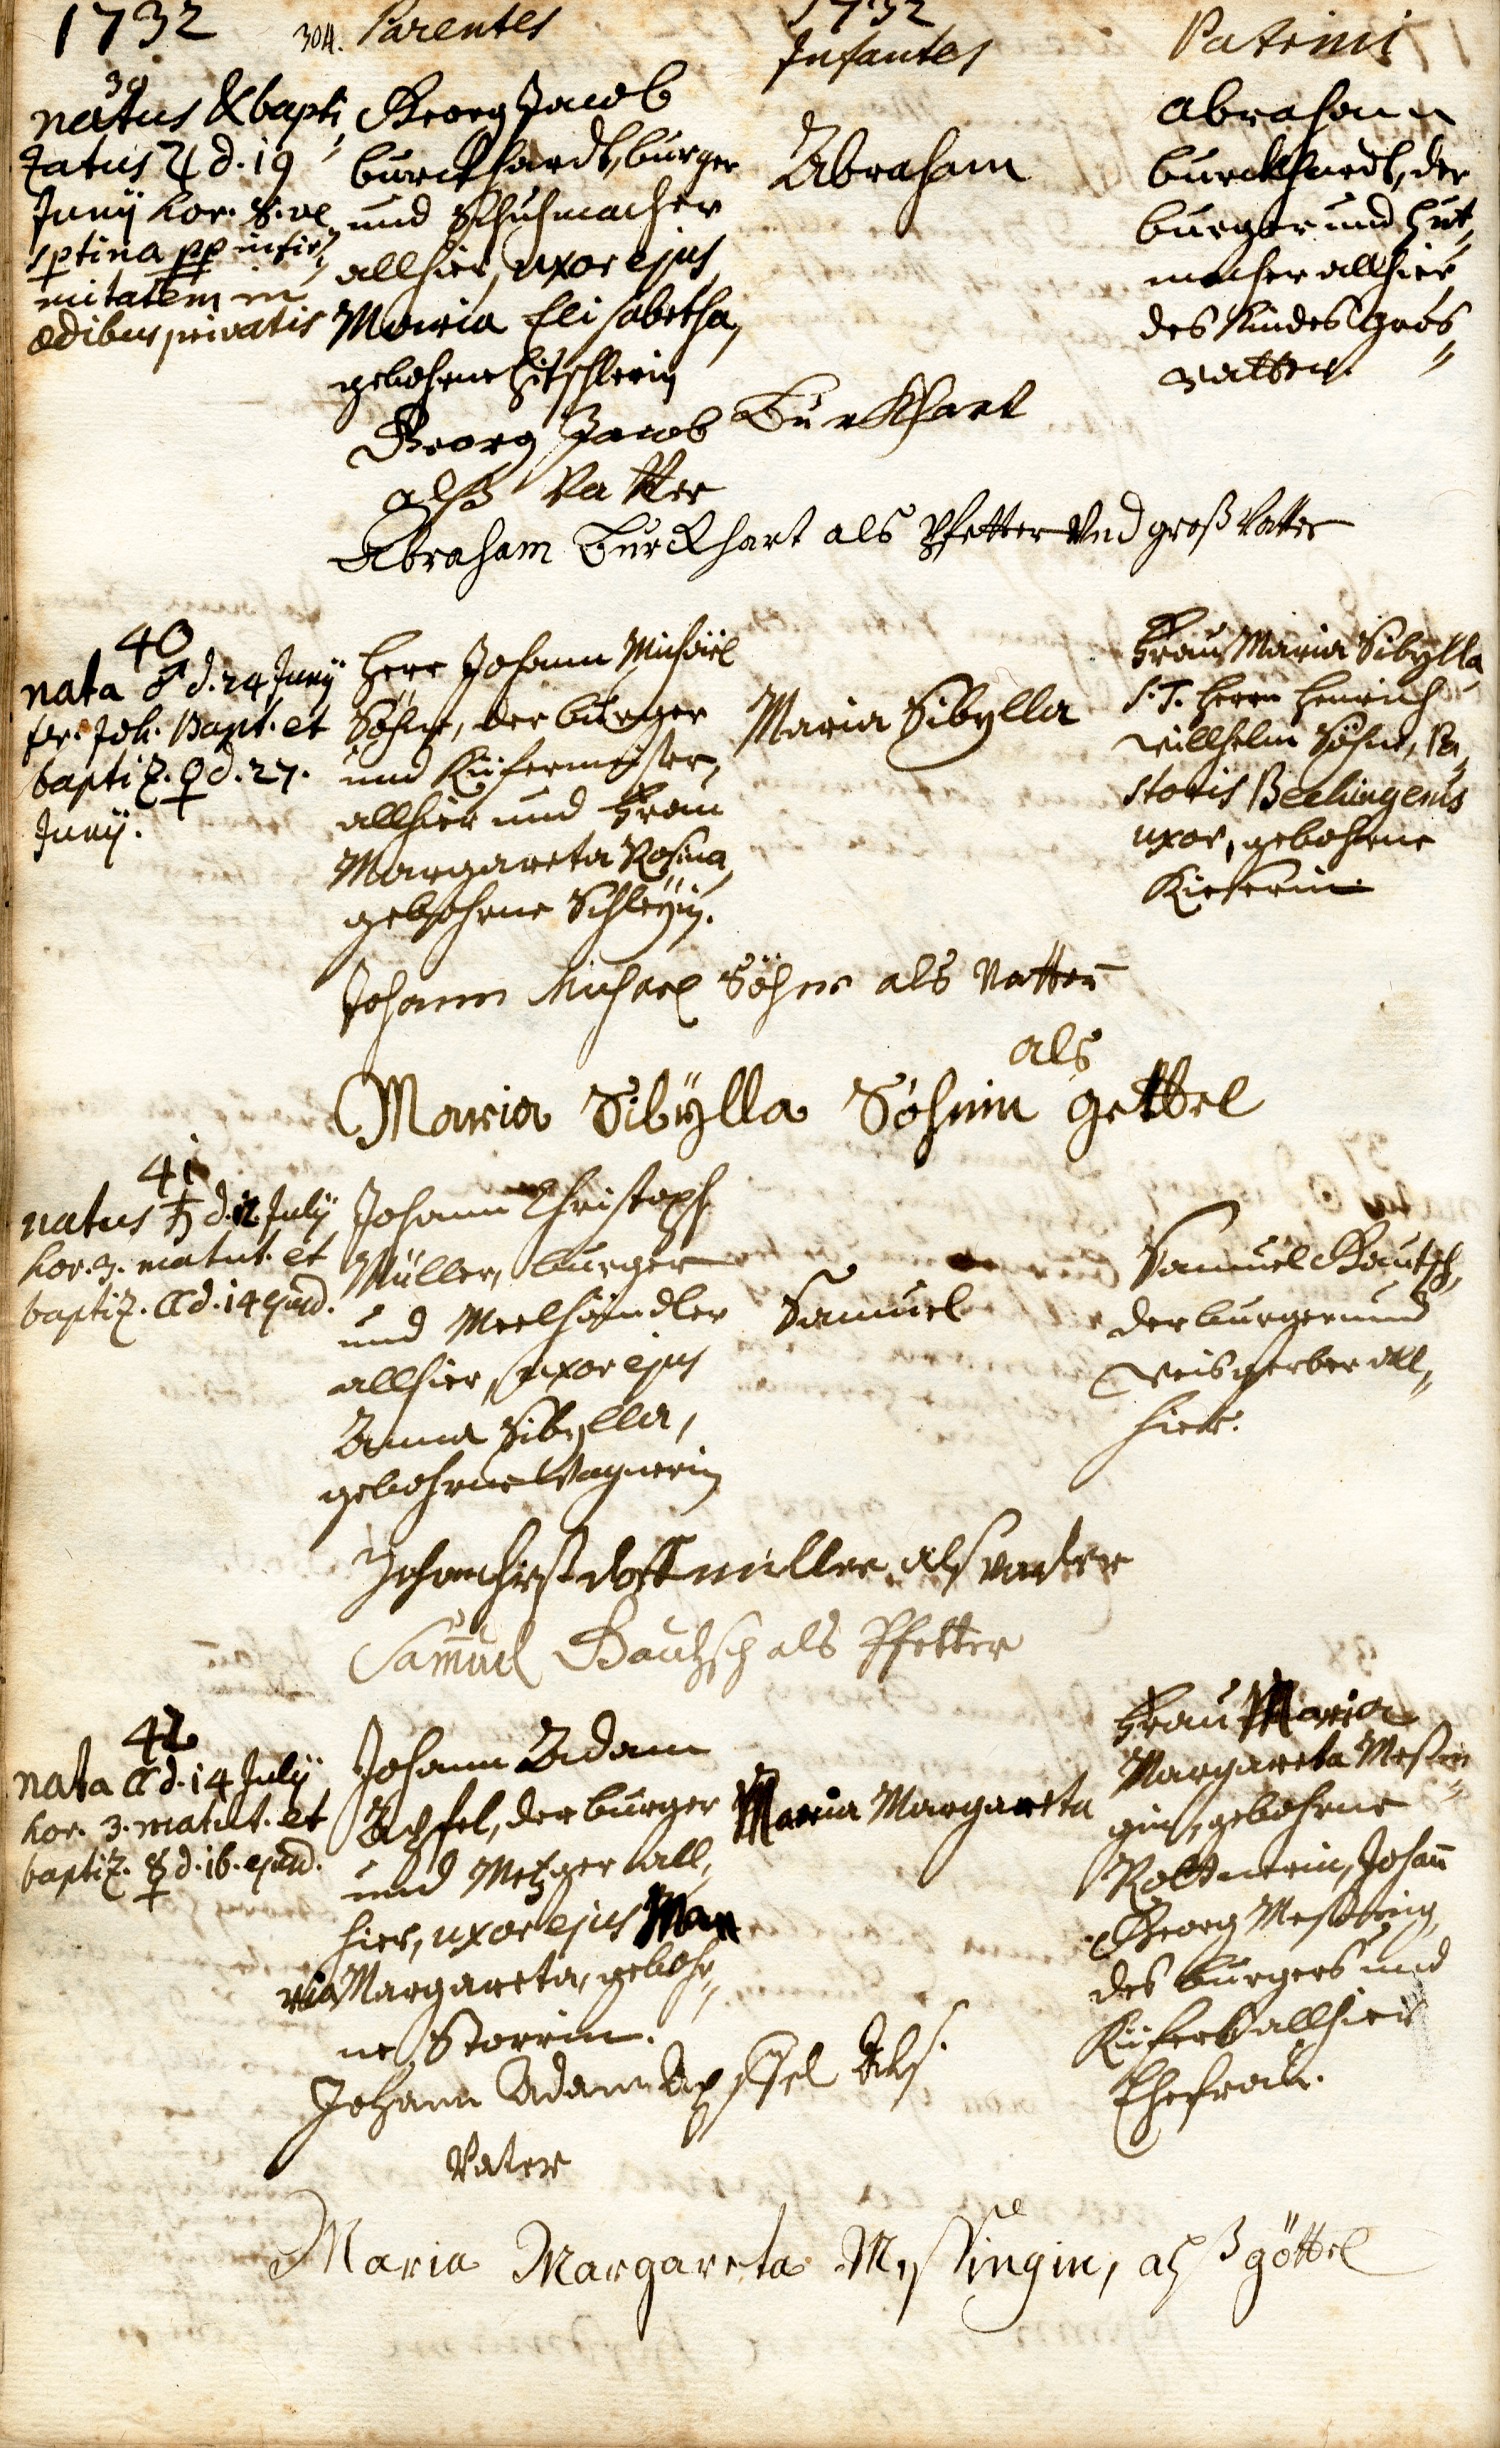 1732
304. Parentes
1732
Infantes
Patrini
39
natus & bapti„
zatus ♃ d. 19
Junÿ hor. 8. ve„
sptina pp infir„
mitatem in
ædibus privatis
Georg Jacob
burckhardt, burger
und Schuhmacher
allhier, uxor ejus
Maria Elisabetha,
gebohrne
Abraham
Abraham
burckhardt, der
burger und Hut„
macher allhier,
des Kindes Gros„
vatter.
Georg Jacob Burkhart
alß Vatter
Abraham Burckhart als Pfetter Vnd groß Vatter
40
nata ♂ d. 24 Junÿ
fer. Joh. Bapt. et
baptiz. ♀ d. 27.
Junÿ.
Herr Johann Michaël
Söhne, der burger
und Küfermeister,
allhier und Frau
Margareta Rosina,
gebohrne Schleÿin.
Maria Sibylla
Frau Maria Sibylla
S. T. Herrn Henrich
Willhelm Söhne, Pa„
storis
uxor, gebohrne
Kieferin
Johann Michael Söhne als Vatter
als
Maria Sibÿlla Söhnin gettel
41
natus ♄ d. 12 Julÿ
hor. 3. matut. et
baptiz. ☾ d. 14 ejusd.
Johann Christoph
Müller, burger
und Meelhändler
allhier, uxor ejus
Anna Sibylla,
gebohrne Wagnerin
Samuel
Samuel Bautsch,
der burger und
Weisgerber all„
hier.
müller als vader
Samuel Bautzsch als Pfetter
42
nata ☾ d. 14 Julÿ
hor. 3. matut. et
baptiz. ☿ d. 16. ejusd.
Johann Adam
Apfel, der burger
und Metzger all„
hier, uxor ejus Ma
ria Margareta, gebohr„
ne Storrin.
Maria Margareta
Frau Maria
Margareta Meßin„
gin, gebohrne
Johañ
Georg Meßing,
des burgers und
Küfers allhier
Ehefrau.
Johann Adam Apffel Als.
Vater
Maria Margareta Meßingin, alß göttel